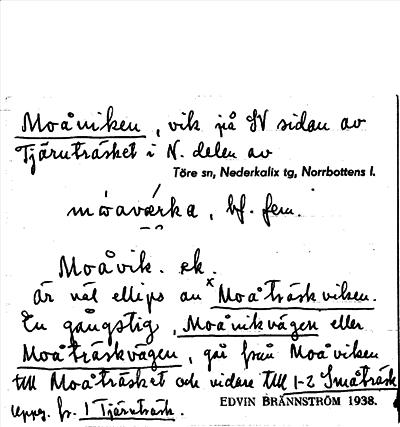 Moåviken, vik på SV sidan av
Tjäruträsket i N. delen av
Töre sn, Nederkalix tg, Norrbottens l.
mòaværka, bf. fem.
Moåvik. ek.
är väl ellips av ×Moåträskviken.
En gångstig, Moåvikvägen eller
Moåträskvägen, går från Moåviken
till Moåträsket och vidare till 1-2 Småträsk
uppg. fr. 1 Tjäruträsk.
EDVIN BRÄNNSTRÖM 1938.